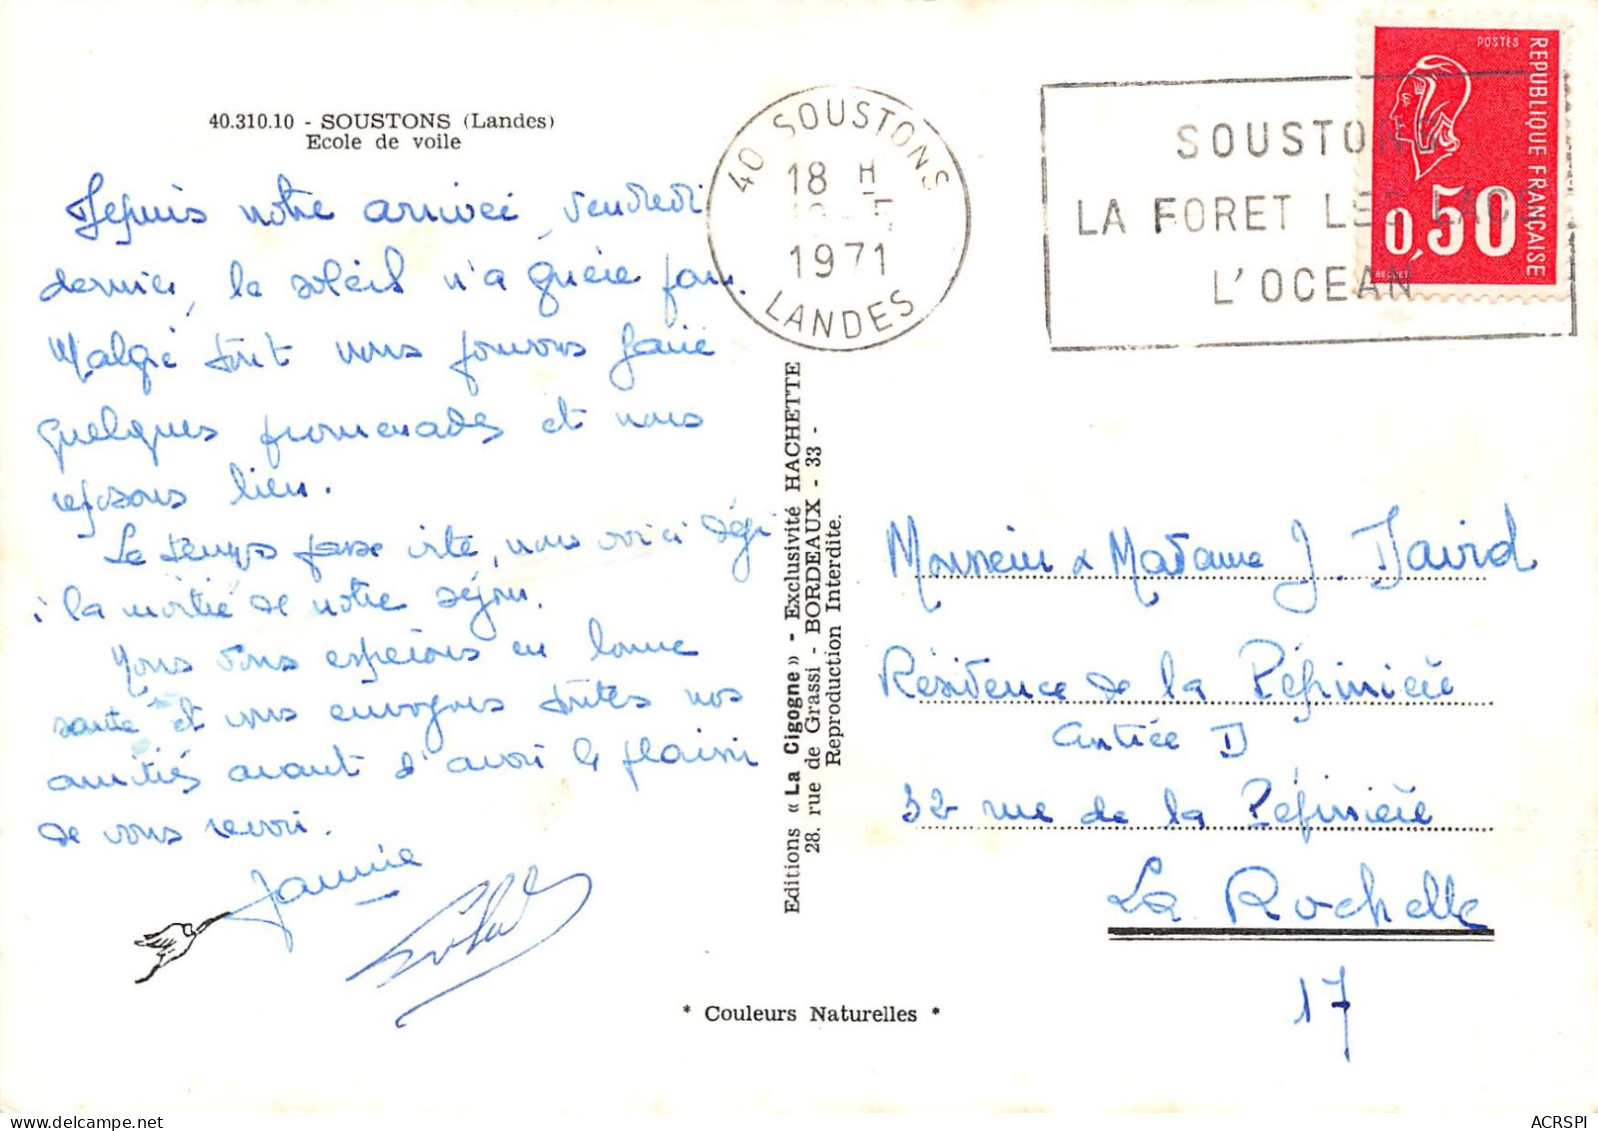 40.310.10 - SOUSTONS (Landes)
Ecole de voile
Depuis notre arrivée, vendredi
dernier, le soleil n'a guère paru.
Malgré tout nous pouvons faire
quelques promenades et nous
reposons bien.
Le temps passe vite, nous voici déjà
à la moitié de notre séjour.
Nous vous espérons en bonne
santé et vous envoyons toutes nos
amitiés avant d'avoir le plaisir
de vous revoir.
Jannie
40 SOUSTONS
18 H
1971
LANDES
SOUSTONS
LA FORET LES LACS
L'OCEAN
POSTES
REPUBLIQUE FRANÇAISE
0,50
BEQUET
Editions « La Cigogne » - Exclusivité HACHETTE
28. rue de Grassi - BORDEAUX - 33 -
Reproduction Interdite.
Monsieur & Madame J. David
Résidence de la Pépinière
Entrée D
32 rue de la Pépinière
La Rochelle
17
* Couleurs Naturelles *
ACRSPI